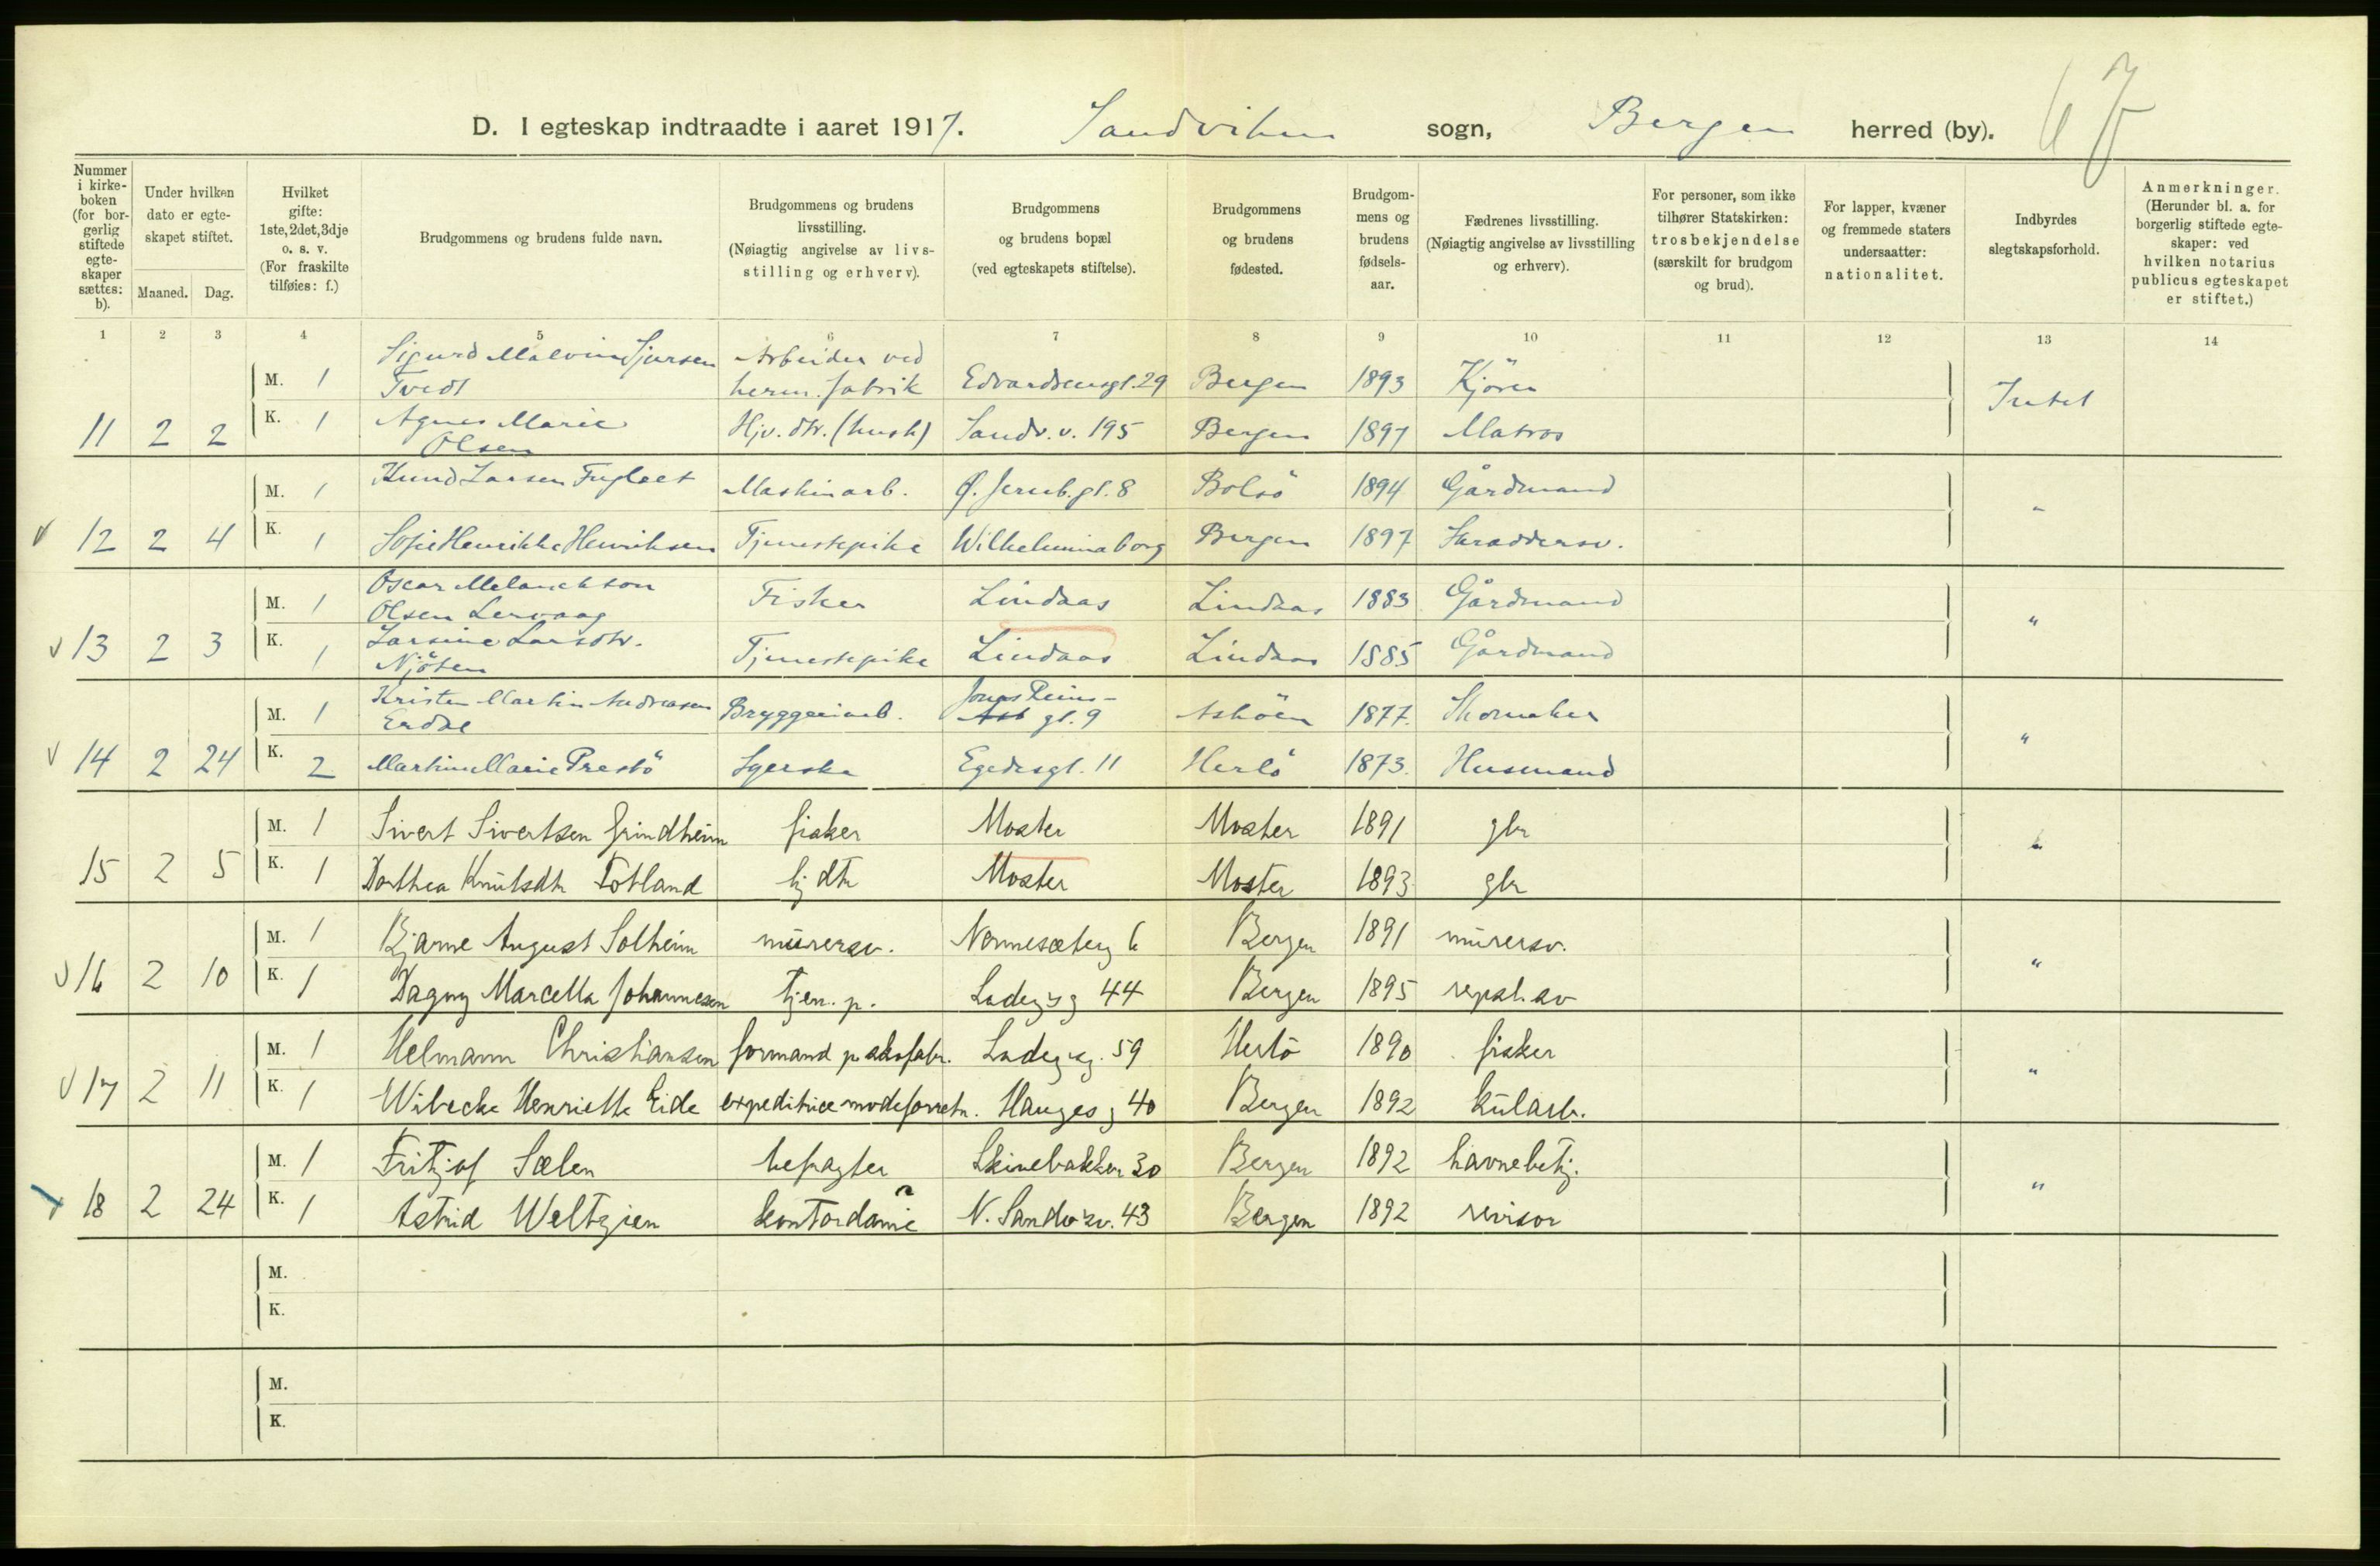 67
D. I egteskap indtraadte i aaret 1917. Sandviken sogn, Bergen herred (by).
Nummer i kirkeboken (for borgerlig stiftede egteskaper sættes: b).
Under hvilken dato er egteskapet stiftet.
Maaned. Dag.
Hvilket gifte: 1ste, 2det, 3dje o. s. v. (For fraskilte tilføies: f.)
Brudgommens og brudens fulde navn.
Brudgommens og brudens livsstilling. (Nøiagtig angivelse av livsstilling og erhverv).
Brudgommens og brudens bopæl (ved egteskapets stiftelse).
Brudgommens og brudens fødested.
Brudgommens og brudens fødselsaar.
Fædrenes livsstilling. (Nøiagtig angivelse av livsstilling og erhverv).
For personer, som ikke tilhører Statskirken: trosbekjendelse (særskilt for brudgom og brud).
For lapper, kvæner og fremmede staters undersaatter: nationalitet.
Indbyrdes slegtskapsforhold.
Anmerkninger. (Herunder bl. a. for borgerlig stiftede egteskaper: ved hvilken notarius publicus egteskapet er stiftet.)
1 2 3 4 5 6 7 8 9 10 11 12 13 14
M. 1 Sigurd Malvin Sjursen Tvedt Arbeider ved herm. fabrik Edvardsensgt. 29 Bergen 1893 Kjörer
11 2 2 K. 1 Agnes Marie Olsen Hjv. dtr. (hush) Sandv. v. 195 Bergen 1897 Matros Intet
M. 1 Knud Larsen Fuglset Maskinarb. Ø. Jernb. gt. 8 Bolsö 1894 Gårdmand
12 2 4 K. 1 Sofie Henrikke Henriksen Tjenestepike Wilhelminaborg Bergen 1897 Skræddersv. "
M. 1 Oscar Melanchton Olsen Lervaag Fisker Lindaas Lindaas 1883 Gårdmand
13 2 3 K. 1 Larsine Larsdtr. Njöten Tjenestepike Lindaas Lindaas 1885 Gårdmand "
M. 1 Kristen Martin Andreasen Erdal Bryggeriarb. Jonas Reins- gt. 9 Asköen 1877. Skomaker
14 2 24 K. 2 Martine Marie Prestö Syerske Egedesgt. 11 Herlö 1873. Husmand "
M. 1 Sivert Sivertsen Grindheim fisker Moster Moster 1891 gbr
15 2 5 K. 1 Dorthea Knutsdtr Totland hj dtr Moster Moster 1893 gbr "
M. 1 Bjarne August Solheim murersv. Nonnesæterg 6 Bergen 1891 murersv.
16 2 10 K. 1 Dagny Marcella Johannesen tjen. p. Ladegsg 44 Bergen 1895 repsl. sv "
M. 1 Helmann Christiansen formand p skofabr. Ladegsg. 59 Herlö 1890 fisker
17 2 11 K. 1 Wibecke Henriette Eide expeditrice modeforretn. Hauges g 40 Bergen 1892 kularb. "
M. 1 Fritjof Sælen befragter Skivebakken 30 Bergen 1892 havnebetj.
18 2 24 K. 1 Astrid Weltzien kontordame N. Sandvsv. 43 Bergen 1892 revisor "
M.
K.
M.
K.